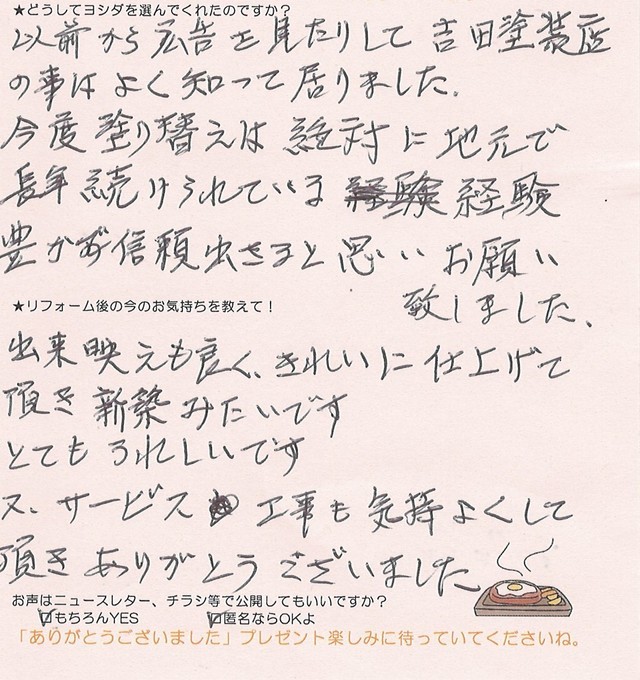 ★どうしてヨシダを選んでくれたのですか？
以前から広告を見たりして吉田塗装店
の事はよく知って居りました。
今度塗り替えは絶対に地元で
長年続けられている 経験
豊かで信頼出きると思いお願い
致しました、
★リフォーム後の今のお気持ちを教えて！
出来映えも良く、きれいに仕上げて
頂き新築みたいです
とてもうれしいです
又、サービス工事も気持よくして
頂きありがとうございました
お声はニュースレター、チラシ等で公開してもいいですか？
☑もちろんYES ☑匿名ならOKよ
「ありがとうございました」プレゼント楽しみに待っていてくださいね。